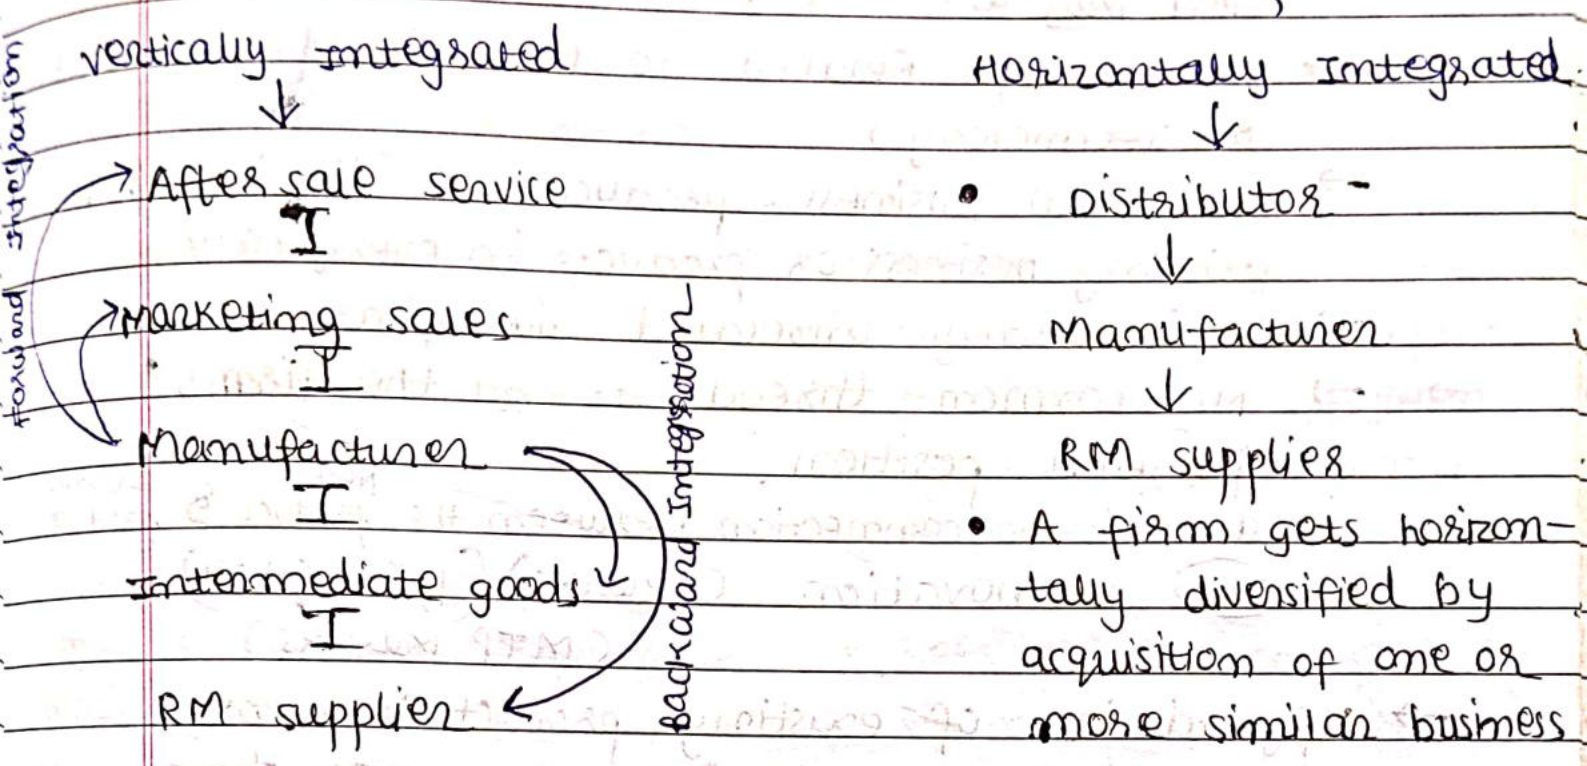 vertically Integrated
After sale service
Marketing sales
Manufacturer
Intermediate goods
RM supplier
Forward Integration
Backward Integration
Horizontally Integrated
• Distributor -
Manufacturer
RM supplier
• A firm gets horizon-
tally diversified by
acquisition of one or
more similar business